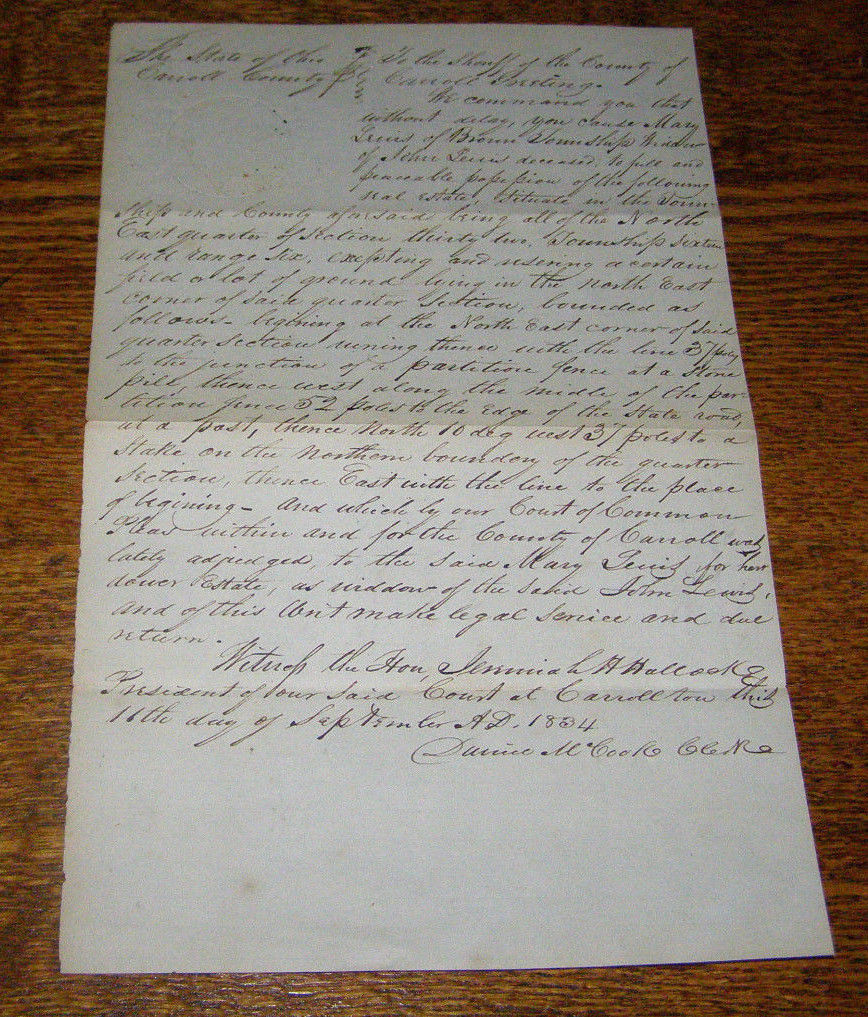 The State of Ohio
Carroll County ss
To the Sheriff of the County of
Carroll Greeting.
We command you that
without delay, you cause Mary
Lewis of Brown Township Widdow
of John Lewis deceased, to full and
peaceable possession of the following
real estate, Situate in the Town-
ship and County aforsaid being all of the North
East quarter of Section thirty two, Township sixteen
and range six, excepting and reserving a certain
field or lot of ground lying in the North East
corner of said quarter Section, bounded as
follows – begining at the North East corner of said
quarter section runing thence with the line 37 poles
to the junction of a partition fence at a Stone
pile, thence west along the middle of the par-
tition fence 52 poles to the Edge of the State road,
at a post, thence North 10 deg west 37 poles to a
Stake on the Northern boundery of the quarter
section, thence East with the line to the place
of begining – and which by our Court of Common
Pleas within and for the County of Carroll was
lately adjudged, to the said Mary Lewis for her
dower Estate, as widdow of the said John Lewis,
and of this Writ make legal service and due
return.
Witness the Hon, Jeremiah H Hallock
President of our said Court at Carrollton this
16th day of September A.D. 1834
Daniel McCook Clerk